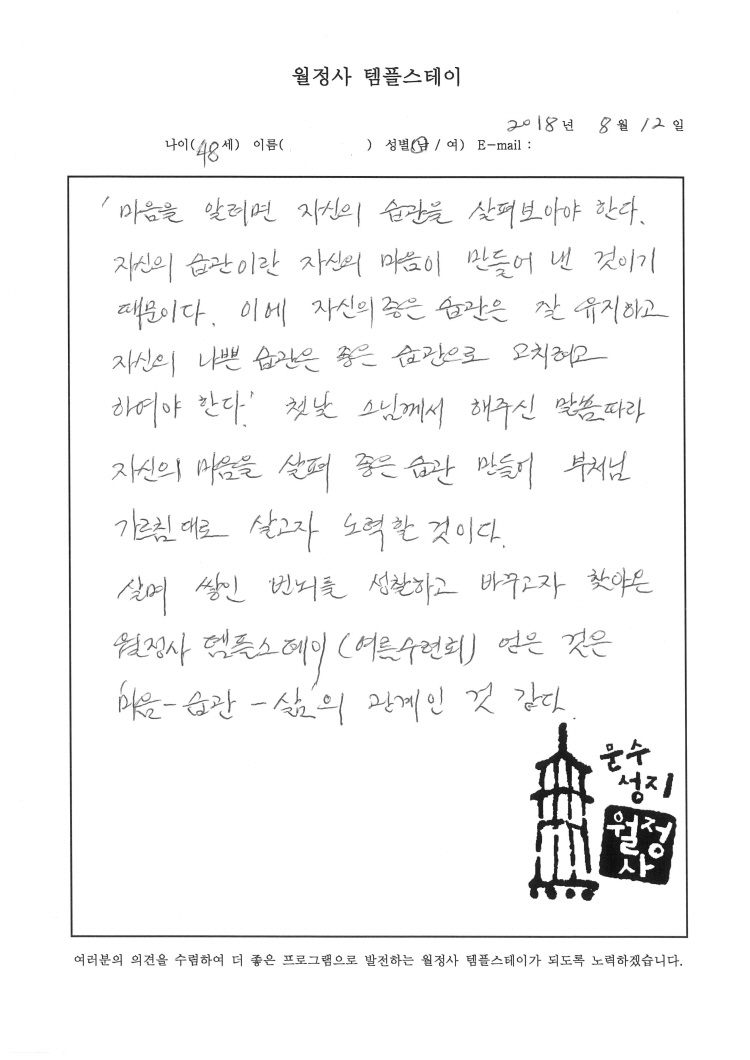 월정사 템플스테이
2018년 8월 12일
나이(48세) 이름( ) 성별(남 / 여) E-mail :
'마음을 알려면 자신의 습관을 살펴보아야 한다.
자신의 습관이란 자신의 마음이 만들어 낸 것이기
때문이다. 이에 자신의 좋은 습관은 잘 유지하고
자신의 나쁜 습관은 좋은 습관으로 고치려고
하여야 한다.' 첫날 스님께서 해주신 말씀따라
자신의 마음을 살펴 좋은 습관 만들어 부처님
가르침대로 살고자 노력할 것이다.
살며 쌓인 번뇌를 성찰하고 바꾸고자 찾아온
월정사 템플스테이(여름수련회) 얻은 것은
'마음-습관-삶'의 관계인 것 같다.
문수
성지
월정
사
여러분의 의견을 수렴하여 더 좋은 프로그램으로 발전하는 월정사 템플스테이가 되도록 노력하겠습니다.